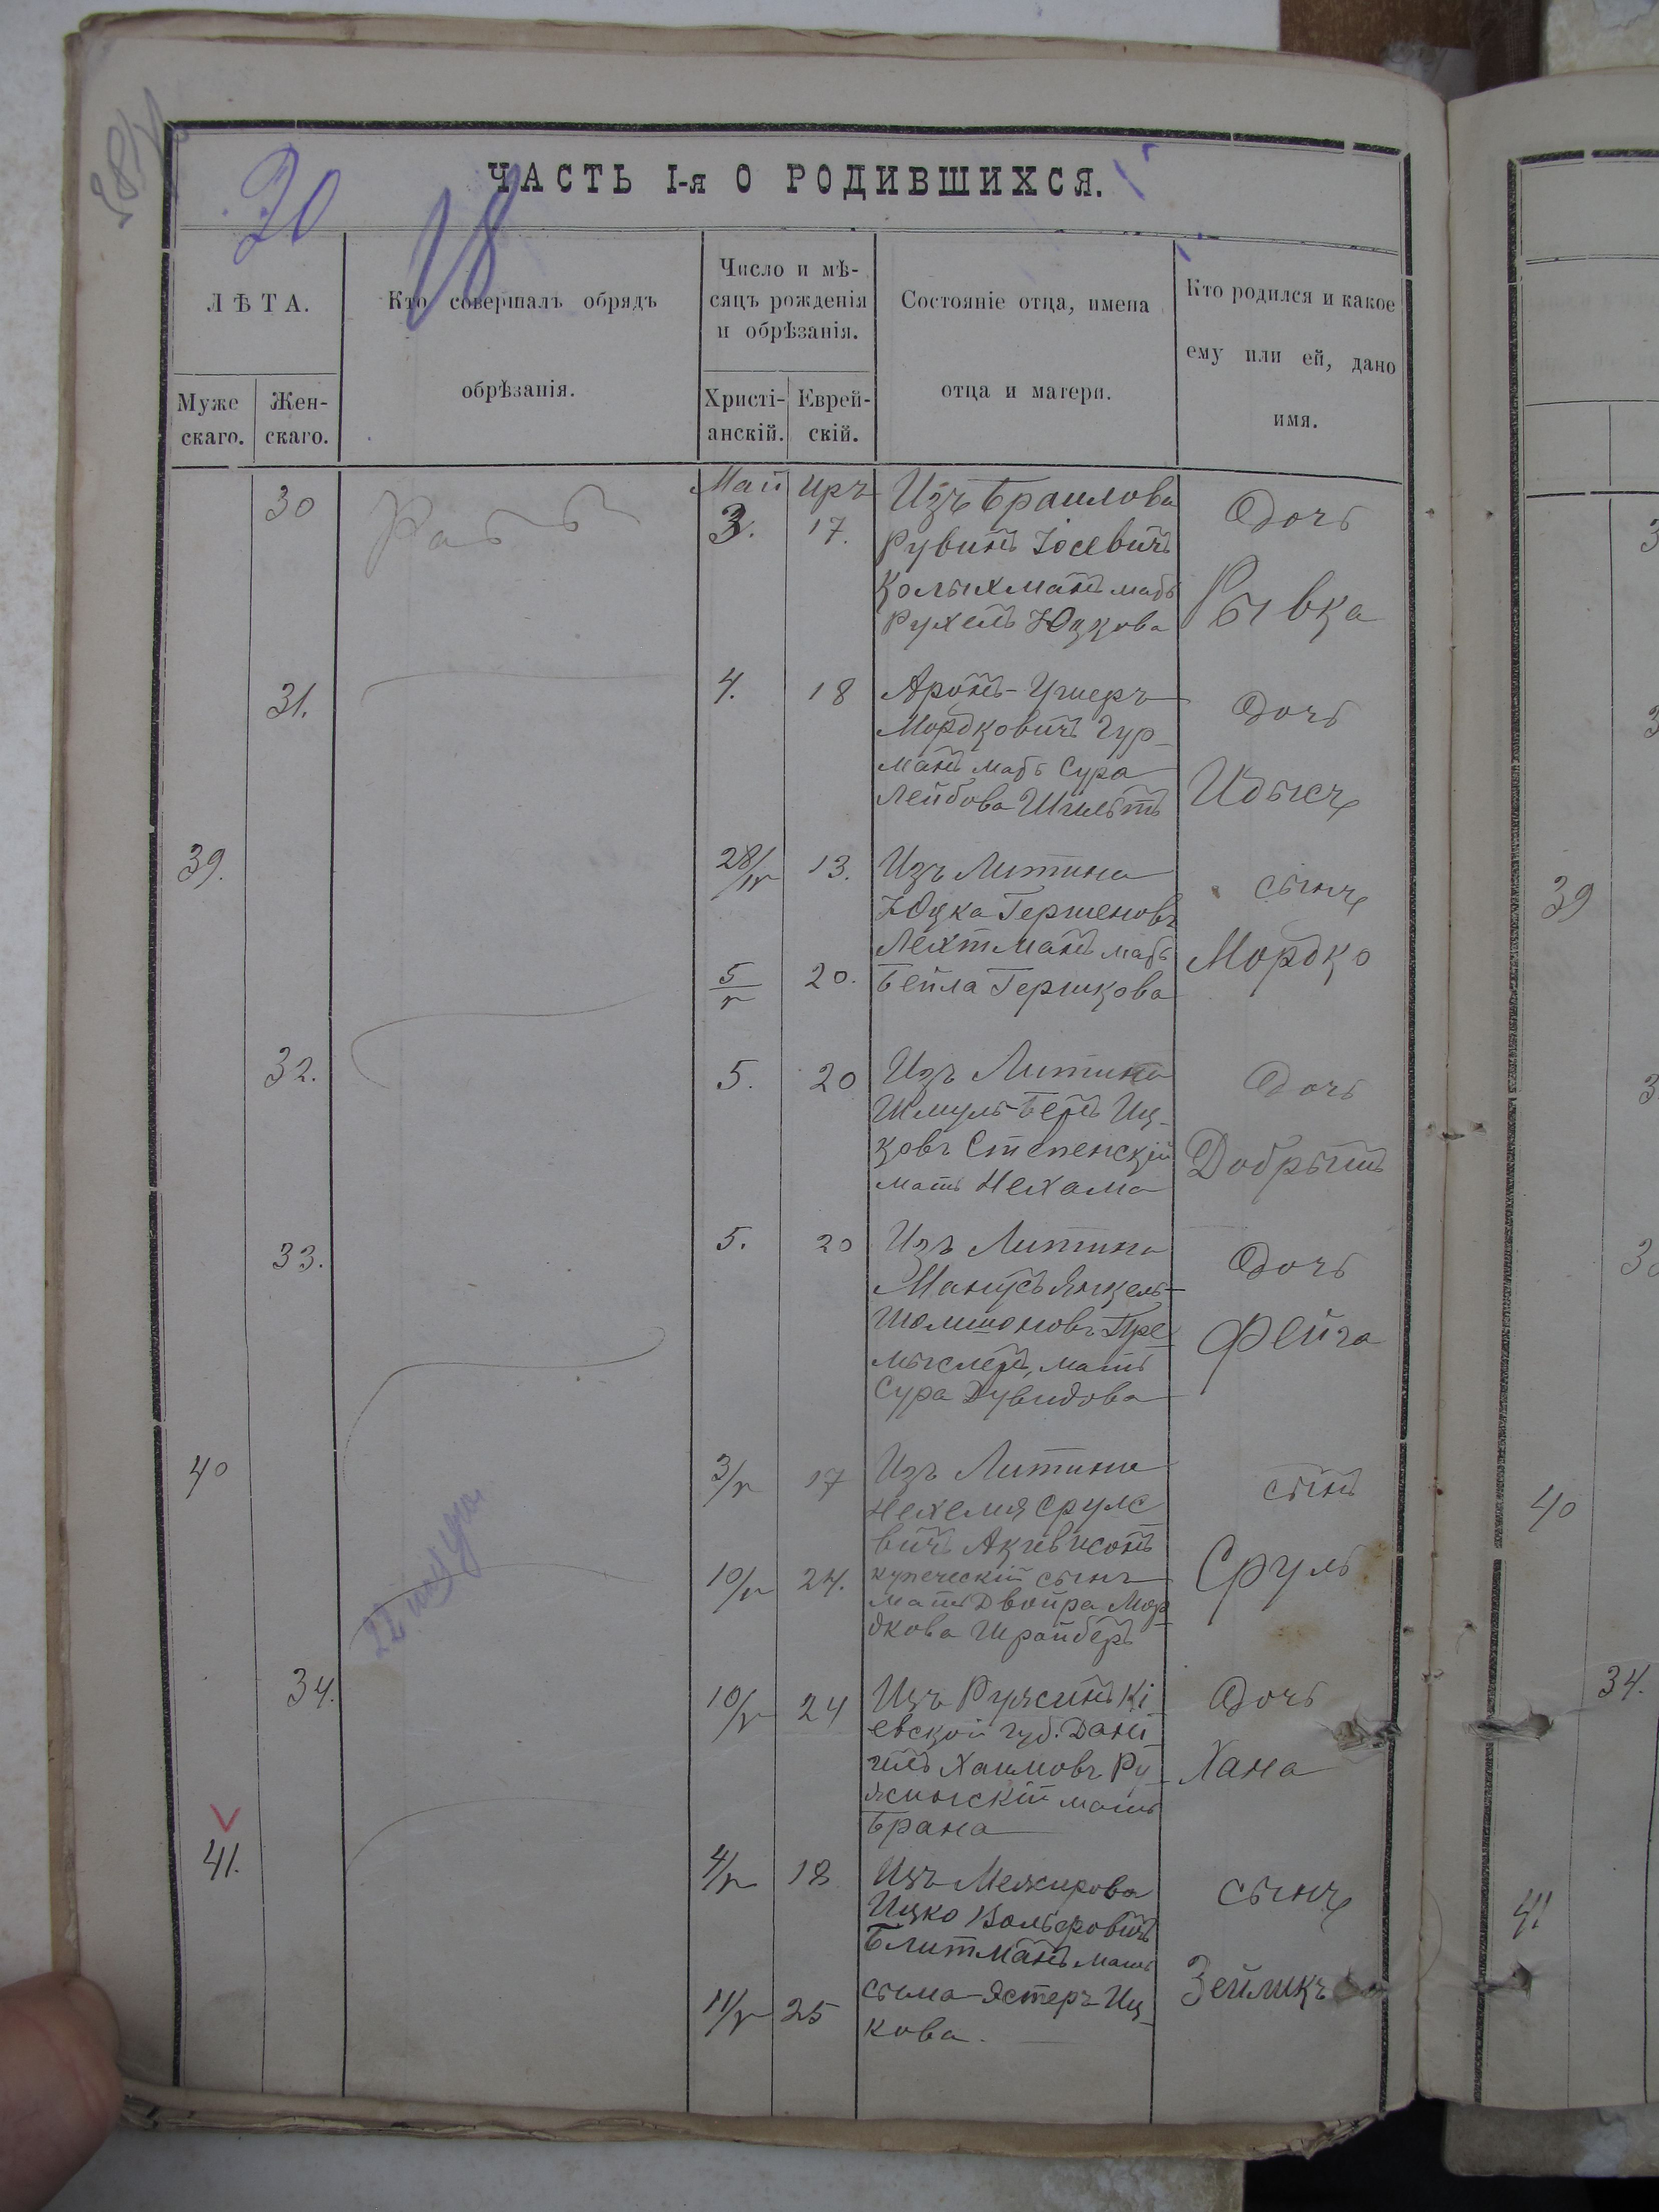 ЧАСТЬ I-я О РОДИВШИХСЯ.
20
18
ЛѢТА.
Муже
скаго.
Жен-
скаго.
Кто совершалъ обрядъ
обрѣзанія.
Число и мѣ-
сяцъ рожденія
и обрѣзанія.
Христі-
анскій.
Еврей-
скій.
Состояніе отца, имена
отца и матери.
Кто родился и какое
ему или ей, дано
имя.
30
Май Иръ
3. 17.
Изъ Браилова
Рувинъ Іосевичъ
Колыхманъ мать
Рухель Юцкова
Дочь
Рывка
31.
4. 18
Аронъ-Ушеръ
Мордковичъ Гур-
манъ мать Сура
Лейбова
Дочь
39.
28/IV 13.
Изъ Литина
Юцка Гершеновъ
Лехтманъ мать
5/V 20.
Бейла Гершкова
сынъ
Мордко
32.
5. 20
Изъ Литина
Шмуль-Беръ Иц-
ковъ Степенскій
мать Нехама
Дочь
Добрышъ
33.
5. 20
Изъ Литина
Манусъ Янкель-
Шолимоновъ Пре-
мыслеръ, мать
Сура Дувидова
Дочь
Фейга
40
3/V 17
Изъ Литина
Нехемія Сруле
вичъ Акивисонъ
10/V 24.
купеческій сынъ
мать Двойра Мор-
дкова Шрайберъ
сынъ
Сруль
34.
10/V 24
Изъ Ружинъ Кі
евской губ. Дані-
илъ Хаимовъ Ру-
жинскій мать
Брана
Дочь
Хана
41.
4/V 18
Изъ Межирова
Ицко Вольфовичъ
Блитманъ мать
11/V 25
Сыма-Эстеръ Иц-
кова.
сынъ
Зейликъ
39
40
34.
41